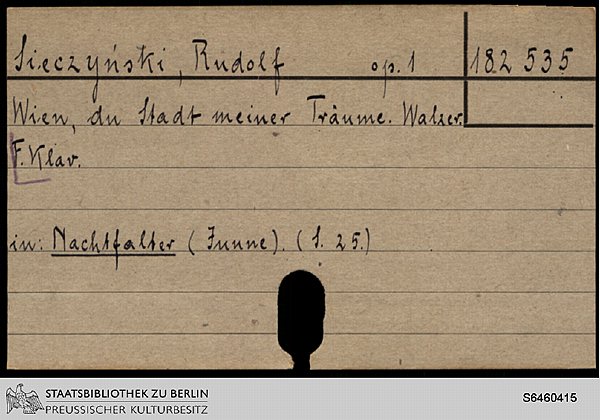 Sieczyński, Rudolf op. 1 182 535
Wien, du Stadt meiner Träume. Walzer.
F. Klav.
in: Nachtfalter (Junne). (S. 25.)
STAATSBIBLIOTHEK ZU BERLIN
PREUSSISCHER KULTURBESITZ
S6460415